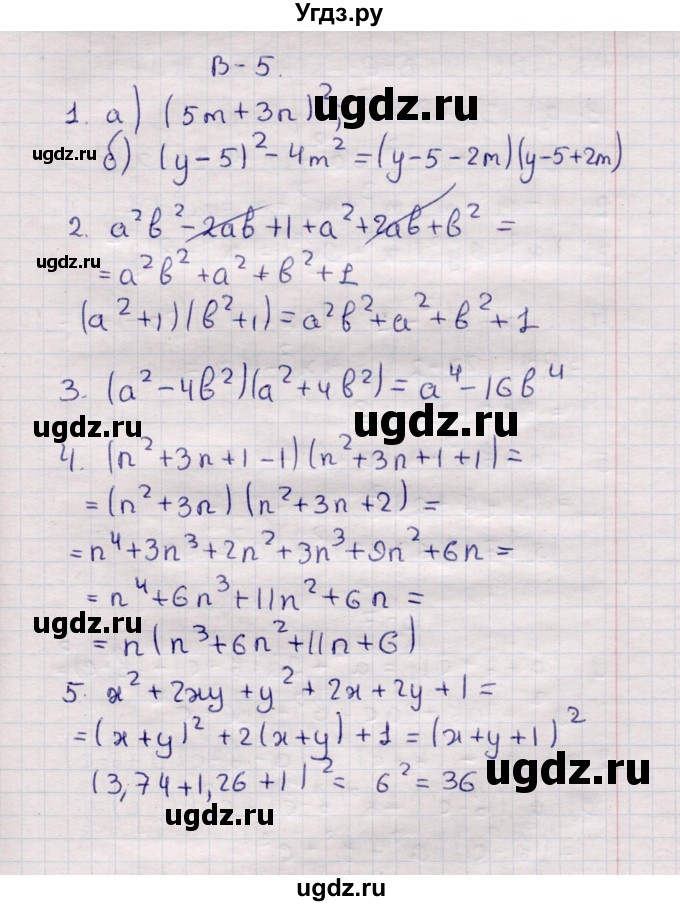 Угдз.ру
В-5.
1. а) (5m+3n)²;
ugdz.ru
ugdz.ru
б) (y-5)²-4m²=(y-5-2m)(y-5+2m)
2. a²b²-2ab+1+a²+2ab+b²=
ugdz.ru
=a²b²+a²+b²+1
(a²+1)(b²+1)=a²b²+a²+b²+1
3. (a²-4b²)(a²+4b²)=a⁴-16b⁴
ugdz.ru
ugdz.ru
4. (n²+3n+1-1)(n²+3n+1+1)=
=(n²+3n)(n²+3n+2)=
=n⁴+3n³+2n²+3n³+9n²+6n=
=n⁴+6n³+11n²+6n=
ugdz.ru
=n(n³+6n²+11n+6)
5. x²+2xy+y²+2x+2y+1=
=(x+y)²+2(x+y)+1=(x+y+1)²
(3,74+1,26+1)²= 6²=36
ugdz.ru
ugdz.ru
ugdz.ru